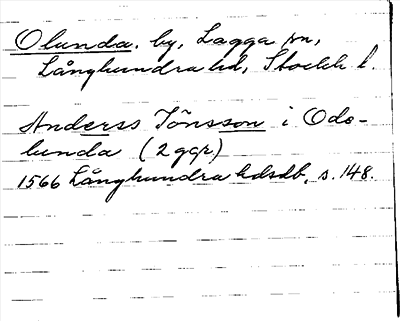 Olunda, by, Lagga sn,
Långhundra hd, Stockh l.
Anderss Jönsson i Ode-
lunda (2 ggr)
1566 Långhundra hdsdb, s. 148.